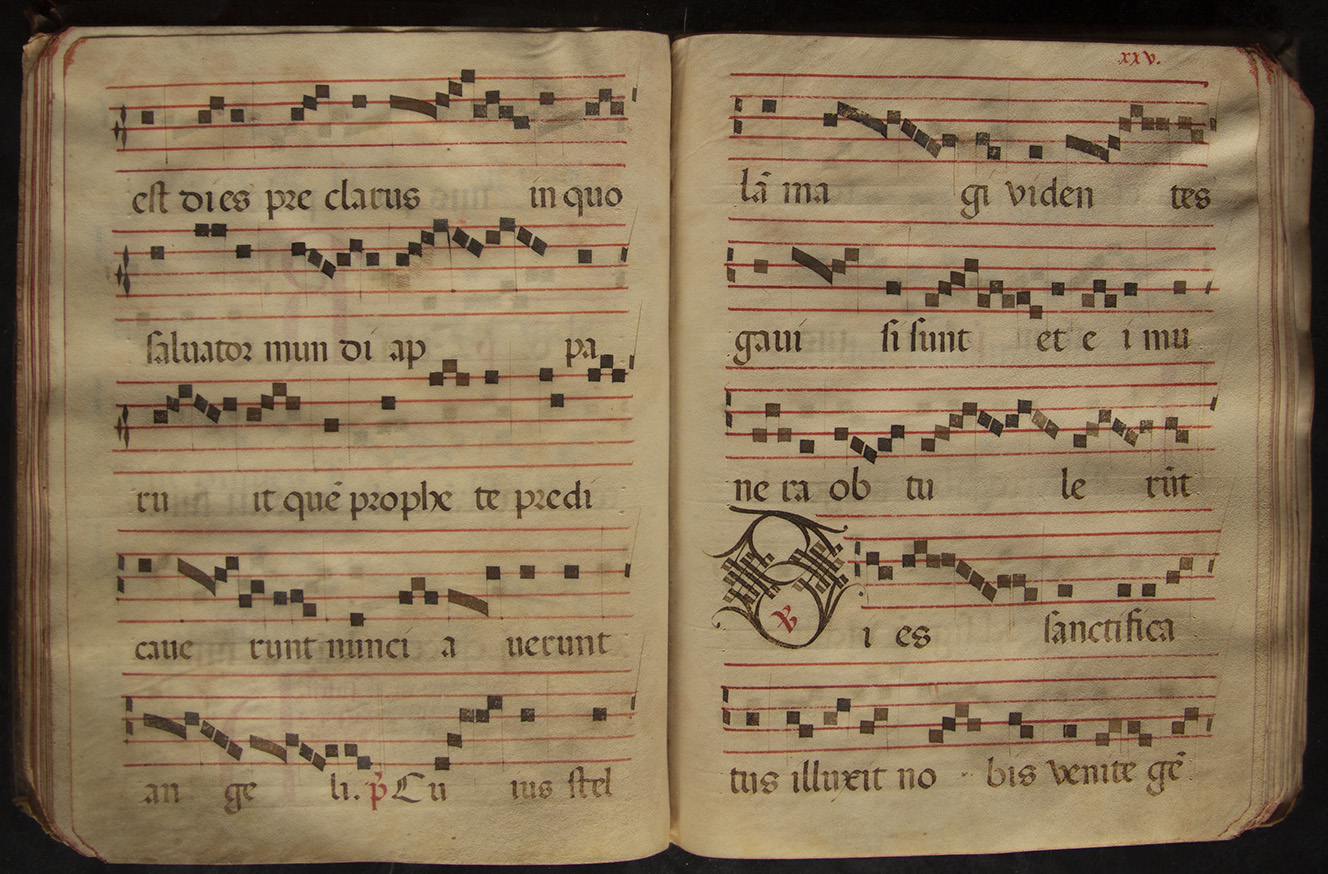 est dies pre clarus in quo
saluator mun di ap pa
ru it quē prophe te predi
caue runt nunci a uerunt
an ge li. p̄ Cu ius stel
xxv.
lā ma gi viden tes
gaui si sunt et e i mu
ne ra ob tu le rūt
D i es sanctifica
℣
tus illuxit no bis venite gē